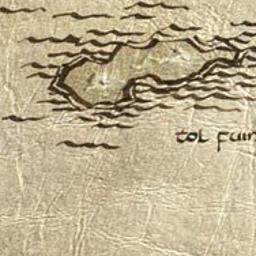 tol fuin